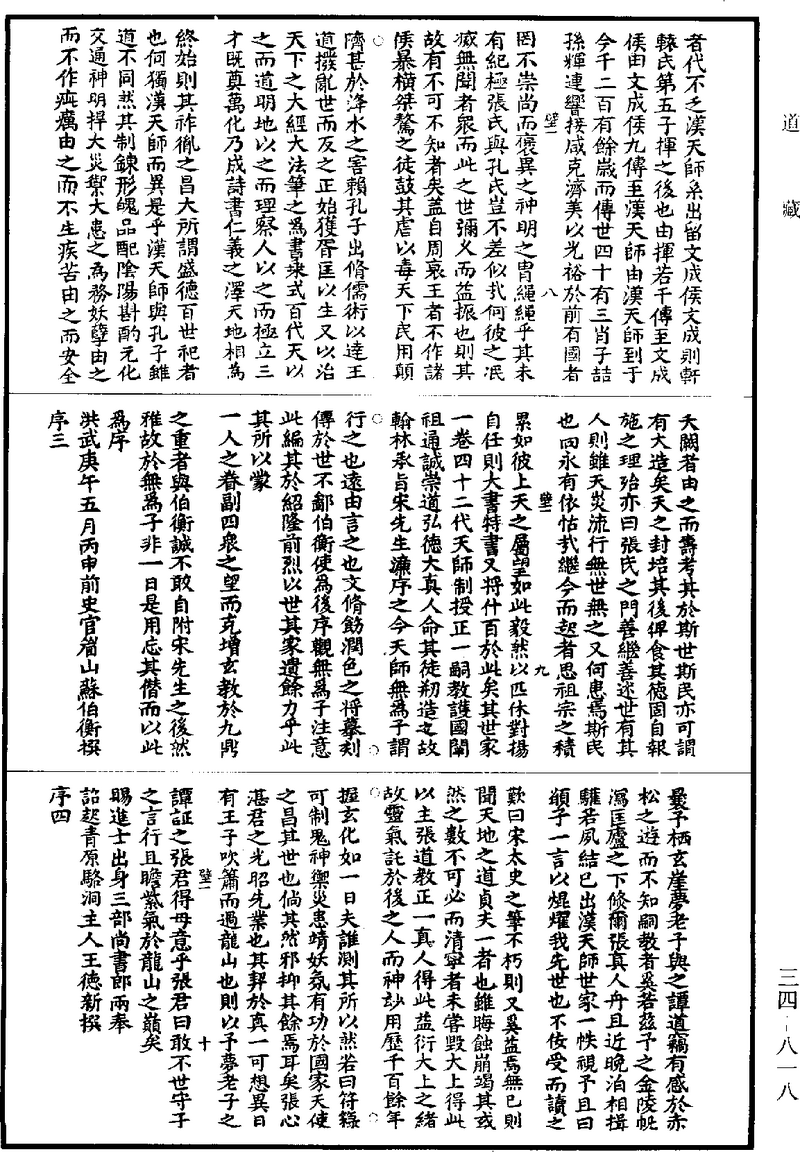 道藏
者代不乏漢天師系出留文成侯文成則軒
轅氏第五子揮之後也由揮若千傳至文成
侯由文成侯九傳至漢天師由漢天師到于
今千二百有餘歲而傳世四十有三肖子喆
孫輝連響接咸克濟美以光裕於前有國者
壁二 八
罔不崇尚而褒異之神明之胄繩繩乎其未
有紀極張氏與孔氏豈不差似哉何彼之泯
滅無聞者衆而此之世彌久而益振也則其
故有不可不知者矣蓋自周衰王者不作諸
侯暴橫桀驁之徒鼓其虐以毒天下民用顛
隮甚於洚水之害賴孔子出脩儒術以達王
道撥亂世而反之正始獲胥匡以生又以治
天下之大經大法筆之爲書乘式百代天以
之而道明地以之而理察人以之而極立三
才既奠萬化乃成詩書仁義之澤天地相爲
終始則其祚胤之昌大所謂盛德百世祀者
也何獨漢天師而異是乎漢天師與孔子雖
道不同然其制鍊形魄品配陰陽斟酌元化
交通神明捍大災禦大患之爲務妖孽由之
而不作疵癘由之而不生疾苦由之而安全
夭閼者由之而壽考其於斯世斯民亦可謂
有大造矣天之封培其後俾食其德固自報
施之理殆亦曰張氏之門善繼善述世有其
人則雖天災流行無世無之又何患焉斯民
也向永有依怙哉繼今而起者思祖宗之積
壁二 九
累如彼上天之屬望如此毅然以匹休對揚
自任則大書特書又將什百於此矣其世家
一卷四十二代天師制授正一嗣教護國闡
祖通誠崇道弘德大真人命其徒刱造之故
翰林承旨宋先生濂序之今天師無爲子謂
行之也遠由言之也文脩飭潤色之將摹刻
傳於世不鄙伯衡使爲後序觀無爲子注意
此編其於紹隆前烈以世其家遺餘力乎此
其所以蒙
一人之眷副四衆之望而克增玄教於九鼎
之重者與伯衡誠不敢自附宋先生之後然
雅故於無爲子非一日是用忘其僭而以此
爲序
洪武庚午五月丙申前史官𡺽山蘇伯衡撰
序三
曩予栖玄崖夢老子與之譚道竊有感於赤
松之遊而不知嗣教者奚若茲予之金陵帨
瀉匡廬之下倏爾張真人舟且近晚泊相揖
驩若夙結已出漢天師世家一帙視予且曰
額子一言以焜燿我先世也不佞受而讀之
歎曰宋太史之筆不朽則又奚益焉無已則
聞天地之道貞夫一者也雖晦蝕崩竭其或
然之數不可必而清寧者未嘗毀大上得此
以主張道教正一真人得此益衍大上之緒
故靈氣託於後之人而神妙用歷千百餘年
握玄化如一日夫誰測其所以然若曰符籙
可制鬼神禦災患靖妖氛有功於國家天使
之昌其世也倘其然邪抑其餘焉耳矣張心
湛君之光昭先業也其契於真一可想異日
有王子吹簫而過龍山也則以予夢老子之
壁二 十
譚証之張君得毋意乎張君曰敢不世守子
之言行且瞻紫氣於龍山之巔矣
賜進士出身三部尚書郎兩奉
詔起青原駱涧主人王德新撰
序四
三四-八一八